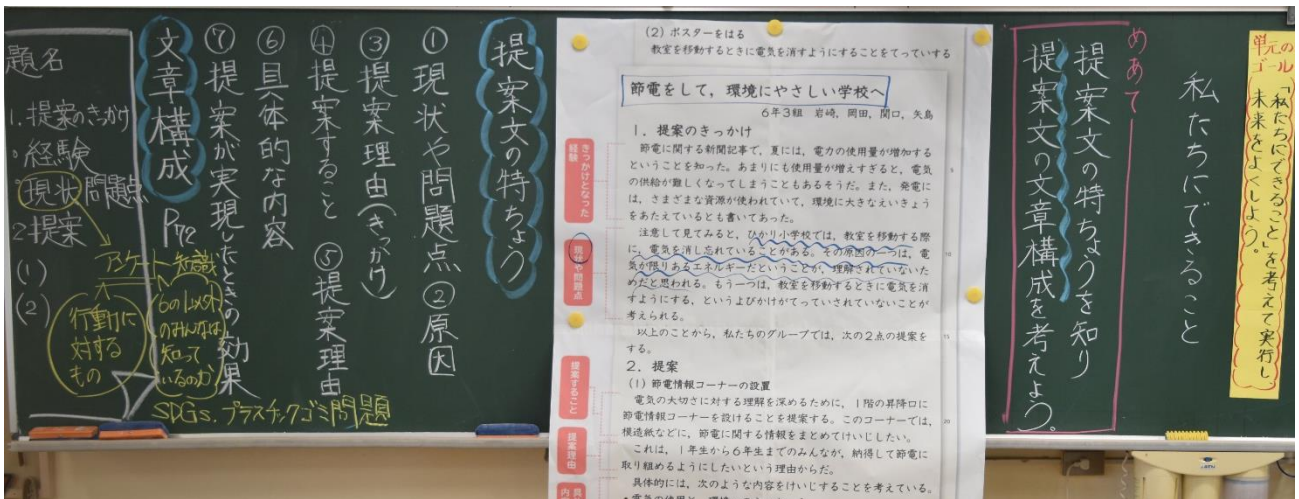 単元のゴール
「私たちにできること」を考えて実行し、
未来をよくしよう。
私たちにできること
めあて
提案文の特ちょうを知り
提案文の文章構成を考えよう。
(2) ポスターをはる
教室を移動するときに電気を消すようにすることをてっていする
節電をして，環境にやさしい学校へ
6年3組 岩崎，岡田，関口，矢島
1．提案のきっかけ
きっかけとなった
経験
節電に関する新聞記事で，夏には，電力の使用量が増加する
ということを知った。あまりにも使用量が増えすぎると，電気
の供給が難しくなってしまうこともあるそうだ。また，発電に
は，さまざまな資源が使われていて，環境に大きなえいきょう
をあたえているとも書いてあった。
現状や問題点
注意して見てみると，ひかり小学校では，教室を移動する際
に，電気を消し忘れていることがある。その原因の一つは，電
気が限りあるエネルギーだということが，理解されていないた
めだと思われる。もう一つは，教室を移動するときに電気を消
すようにする，というよびかけがてっていされていないことが
考えられる。
以上のことから，私たちのグループでは，次の2点の提案を
する。
2．提案
(1) 節電情報コーナーの設置
提案すること
電気の大切さに対する理解を深めるために，1階の昇降口に
節電情報コーナーを設けることを提案する。このコーナーでは，
模造紙などに，節電に関する情報をまとめてけいじしたい。
提案理由
これは，1年生から6年生までのみんなが，納得して節電に
取り組めるようにしたいという理由からだ。
具体的には，次のような内容をけいじすることを考えている。
5
10
15
20
提案文の特ちょう
①現状や問題点 ②原因
③提案理由(きっかけ)
④提案すること ⑤提案理由
⑥具体的な内容
⑦提案が実現したときの効果
文章構成 P72
題名
1.提案のきっかけ
・経験
・現状 問題点
2提案
(1)
(2)
アンケート 知識
行動に
対する
もの
6の1以外
のみんなは
知って
いるのか
SDGs.プラスチックゴミ問題